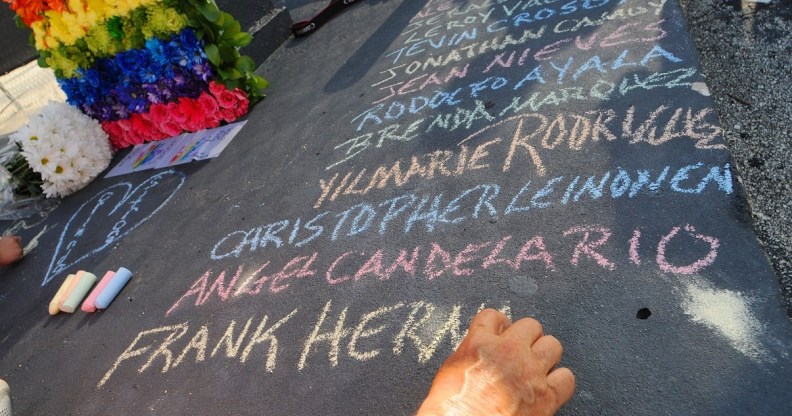 LEROY
TEVIN CROSB
JONATHAN CAMUY
JEAN NIEVES
RODOLFO AYALA
BRENDA MARQUEZ
YILMARIE RODRIGUES
CHRISTOPHER LEINONEN
ANGEL CANDELARIO
FRANK HERN